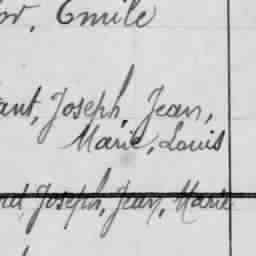 Emile
Joseph, Jean,
Marie, Louis
Joseph, Jean, Marie